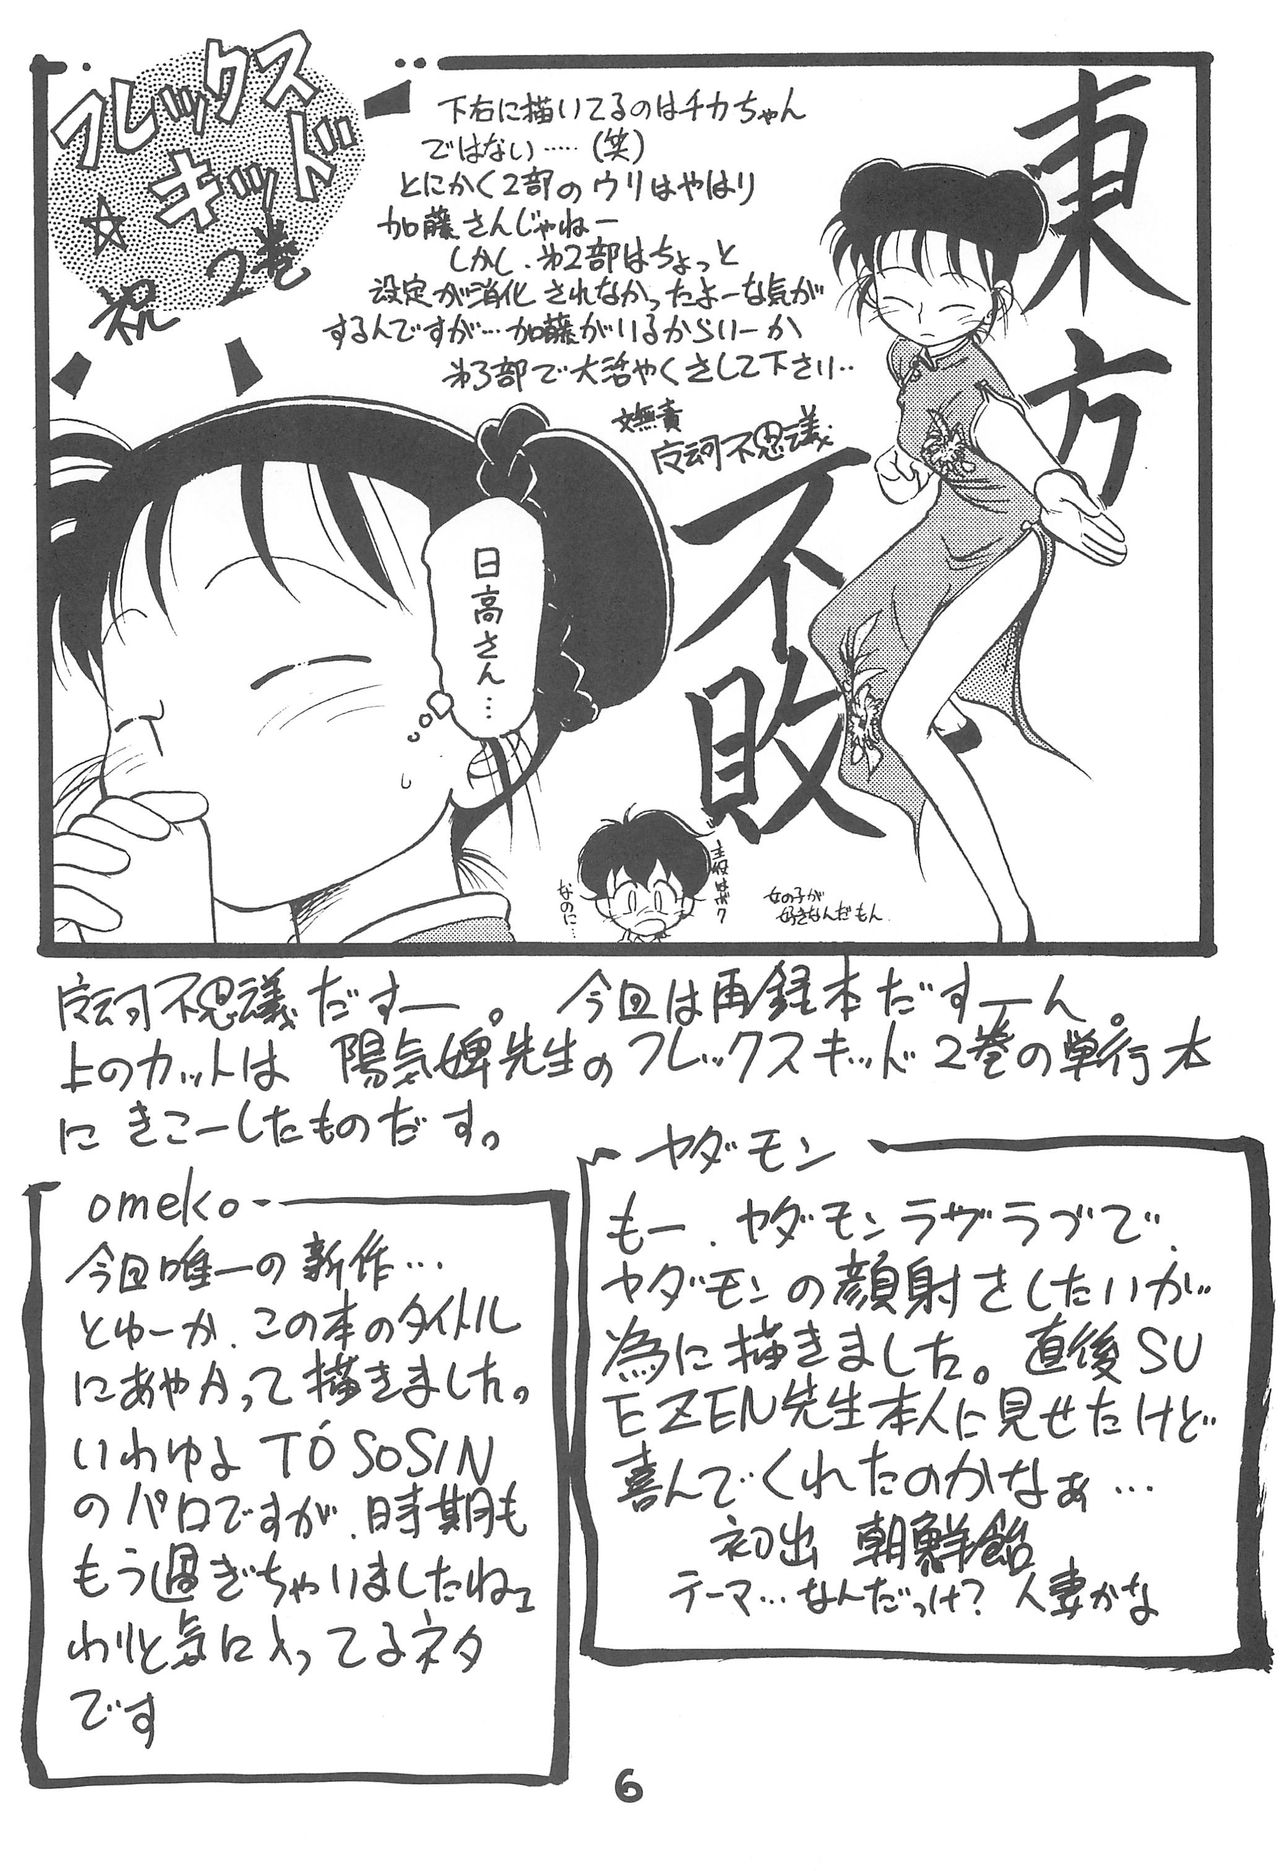 フレックス
キッド
☆
祝 2巻
下右に描いてるのはチカちゃん
ではない……(笑)
とにかく2部のウリはやはり
加藤さんじゃねー
しかし、第2部はちょっと
設定が消化されなかったよーな気が
するんですが…加藤がいるからいーか
第3部で大活やくさして下さり‥
文無責
不思議
東方
不敗
日高さん…
主役はボク
なのに…
女の子が
好きなんだもん
不思議だすー。今回は再録本だすーん。
上のカットは 陽気婢先生のフレックスキッド2巻の単行本
に きこーしたものだす。
omeko
今回唯一の新作…
とゆーか、この本のタイトル
にあやかって描きました。
いわゆる TÓSOSIN
のパロですが、時期も
もう過ぎちゃいましたねェ
わりと気に入ってるネタ
です
ヤダモン
もー、ヤダモンラヴラブで、
ヤダモンの顔射をしたいが
為に描きました。直後SU
EZEN先生本人に見せたけど
喜んでくれたのかなぁ…
初出 朝鮮飴
テーマ…なんだっけ?人妻かな
6